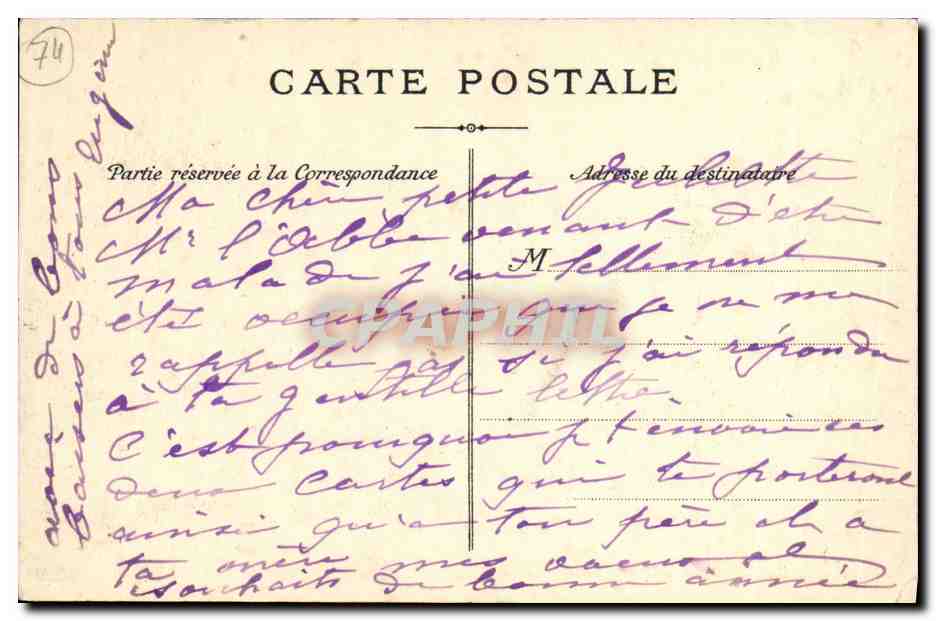 74
CARTE POSTALE
Partie réservée à la Correspondance
Adresse du destinataire
M
Ma chère petite
Mr l'Abbé venant d'être
malade j'ai tellement
été occupée que je ne me
rappelle pas si j'ai répondu
à ta gentille lettre.
C'est pourquoi je t'envoie ces
deux cartes qui te porteront
ainsi qu'a ton père et a
ta mère mes voeux et
souhaits de bonne année
de
Baisers à tous
CPAPHIL